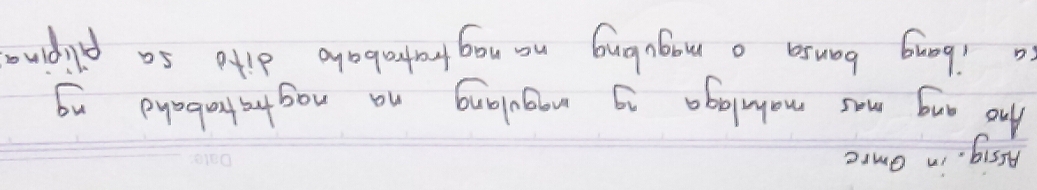 Date:
Assig. in Omrc
Ano ang mas mahalaga ng magulang na nagtratrabaho ng
sa ibang bansa o magulang na nagtratrabaho dito sa Pilipinas